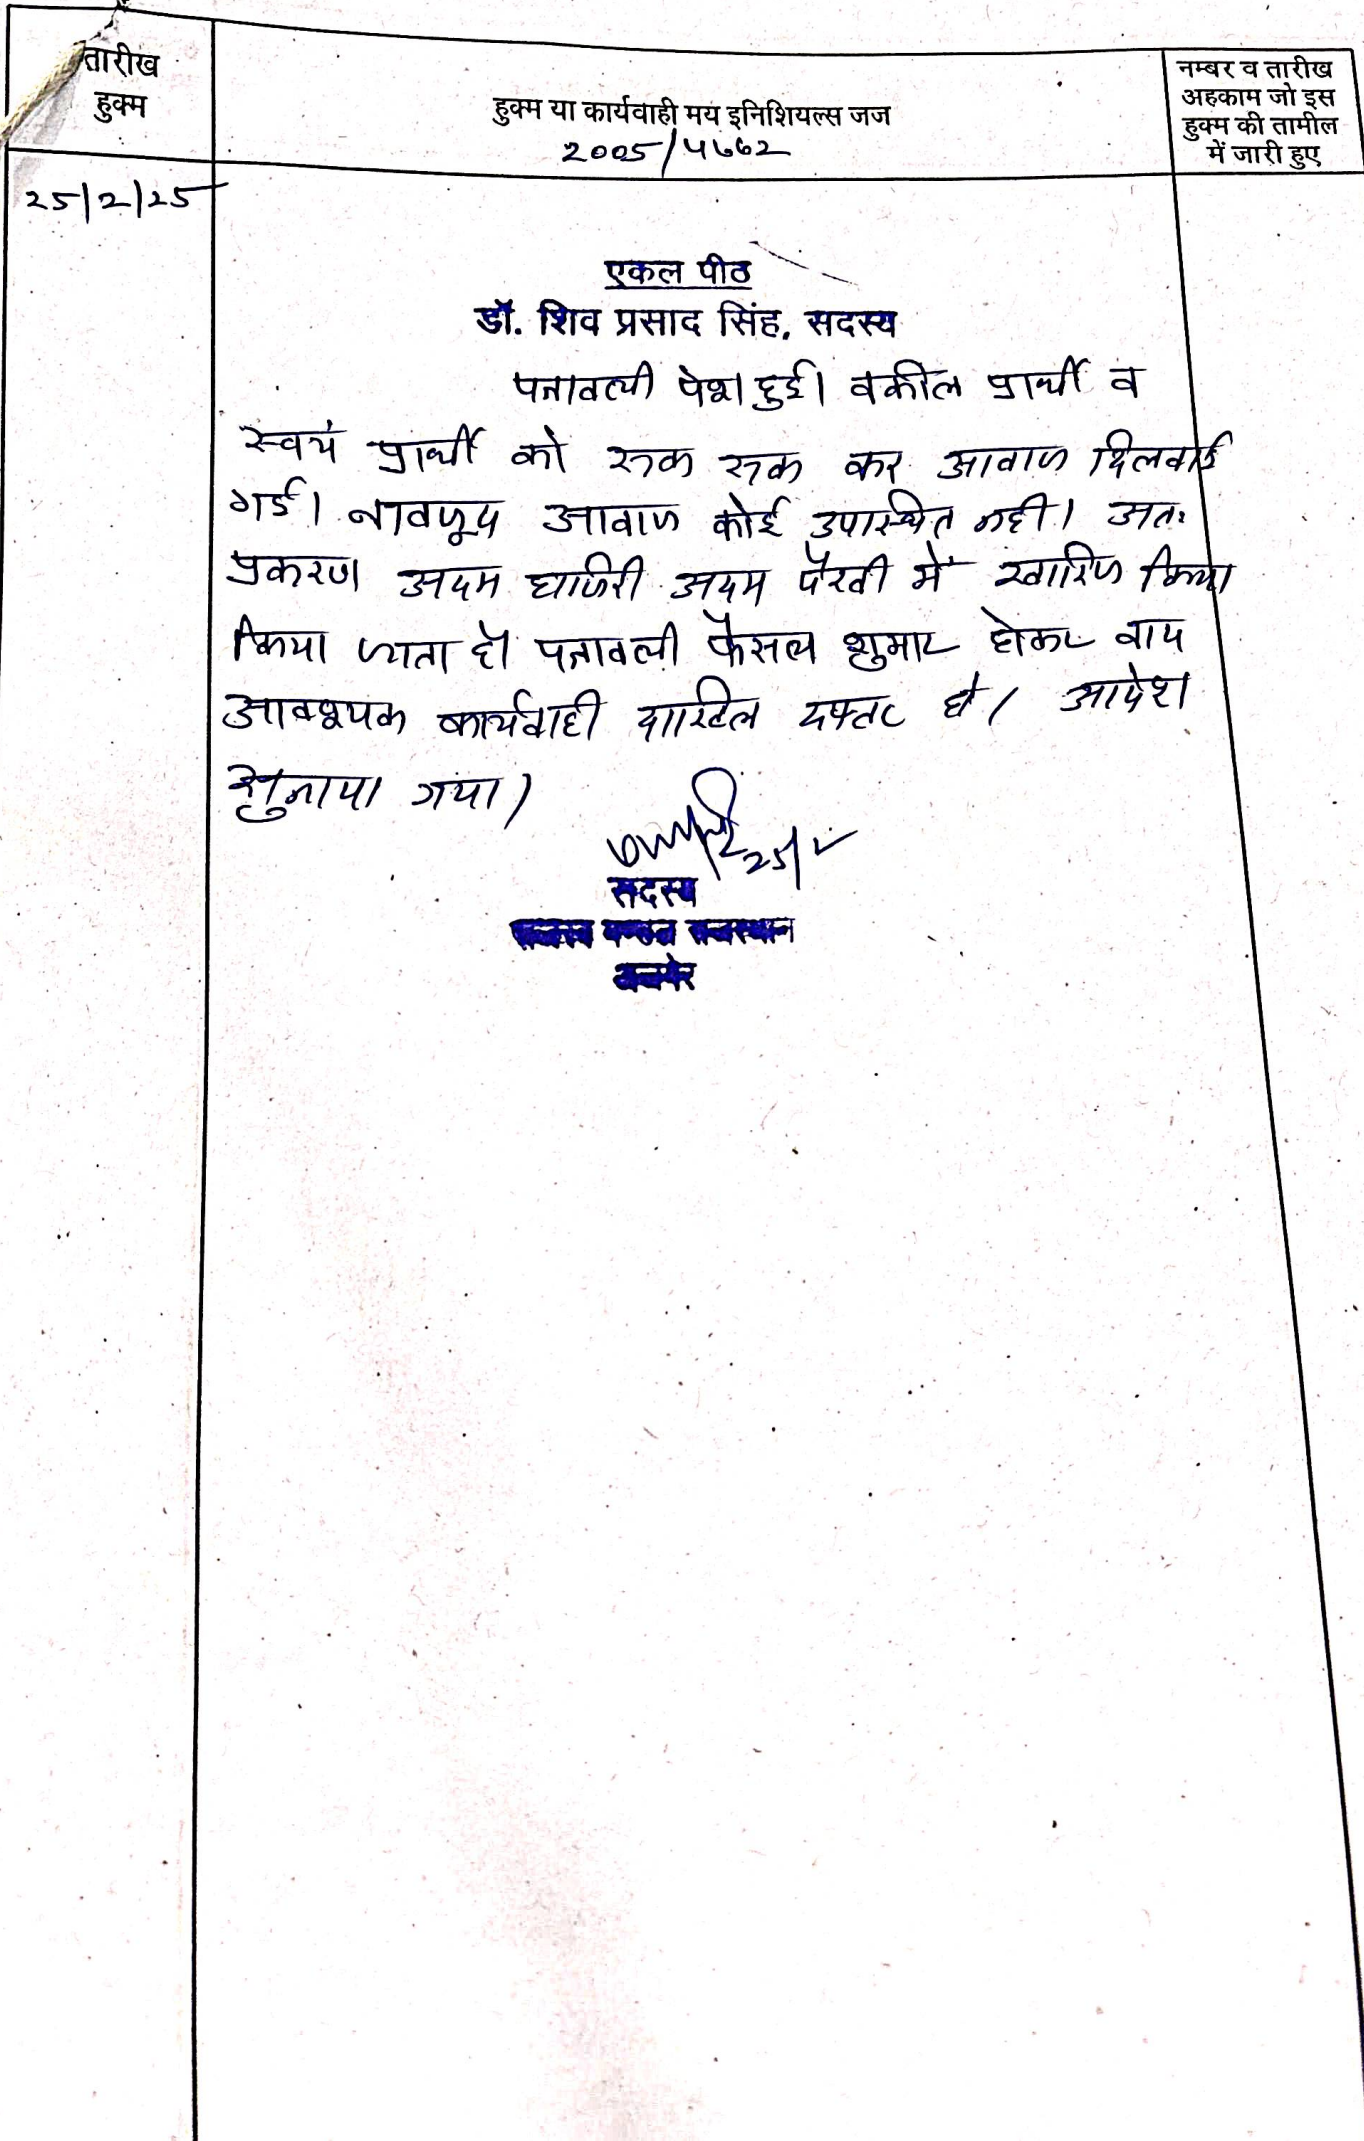 तारीख
हुक्म
हुक्म या कार्यवाही मय इनिशियल्स जज
2005/5762
नम्बर व तारीख
अहकाम जो इस
हुक्म की तामील
में जारी हुए
25/2/25
एकल पीठ
डॉ. शिव प्रसाद सिंह, सदस्य
पत्रावली पेश हुई। वकील प्रार्थी व
स्वयं प्रार्थी को रूक रूक कर आवाज दिलवाई
गई। बावजूद आवाज कोई उपस्थित नहीं। अतः
प्रकरण अदम हाजिरी अदम पैरवी में खारिज किया
किया जाता है। पत्रावली फैसल शुमार होकर बाद
आवश्यक कार्यवाही दाखिल दफ्तर हो। आदेश
सुनाया गया।
25/2
सदस्य
राजस्व मण्डल राजस्थान
अजमेर